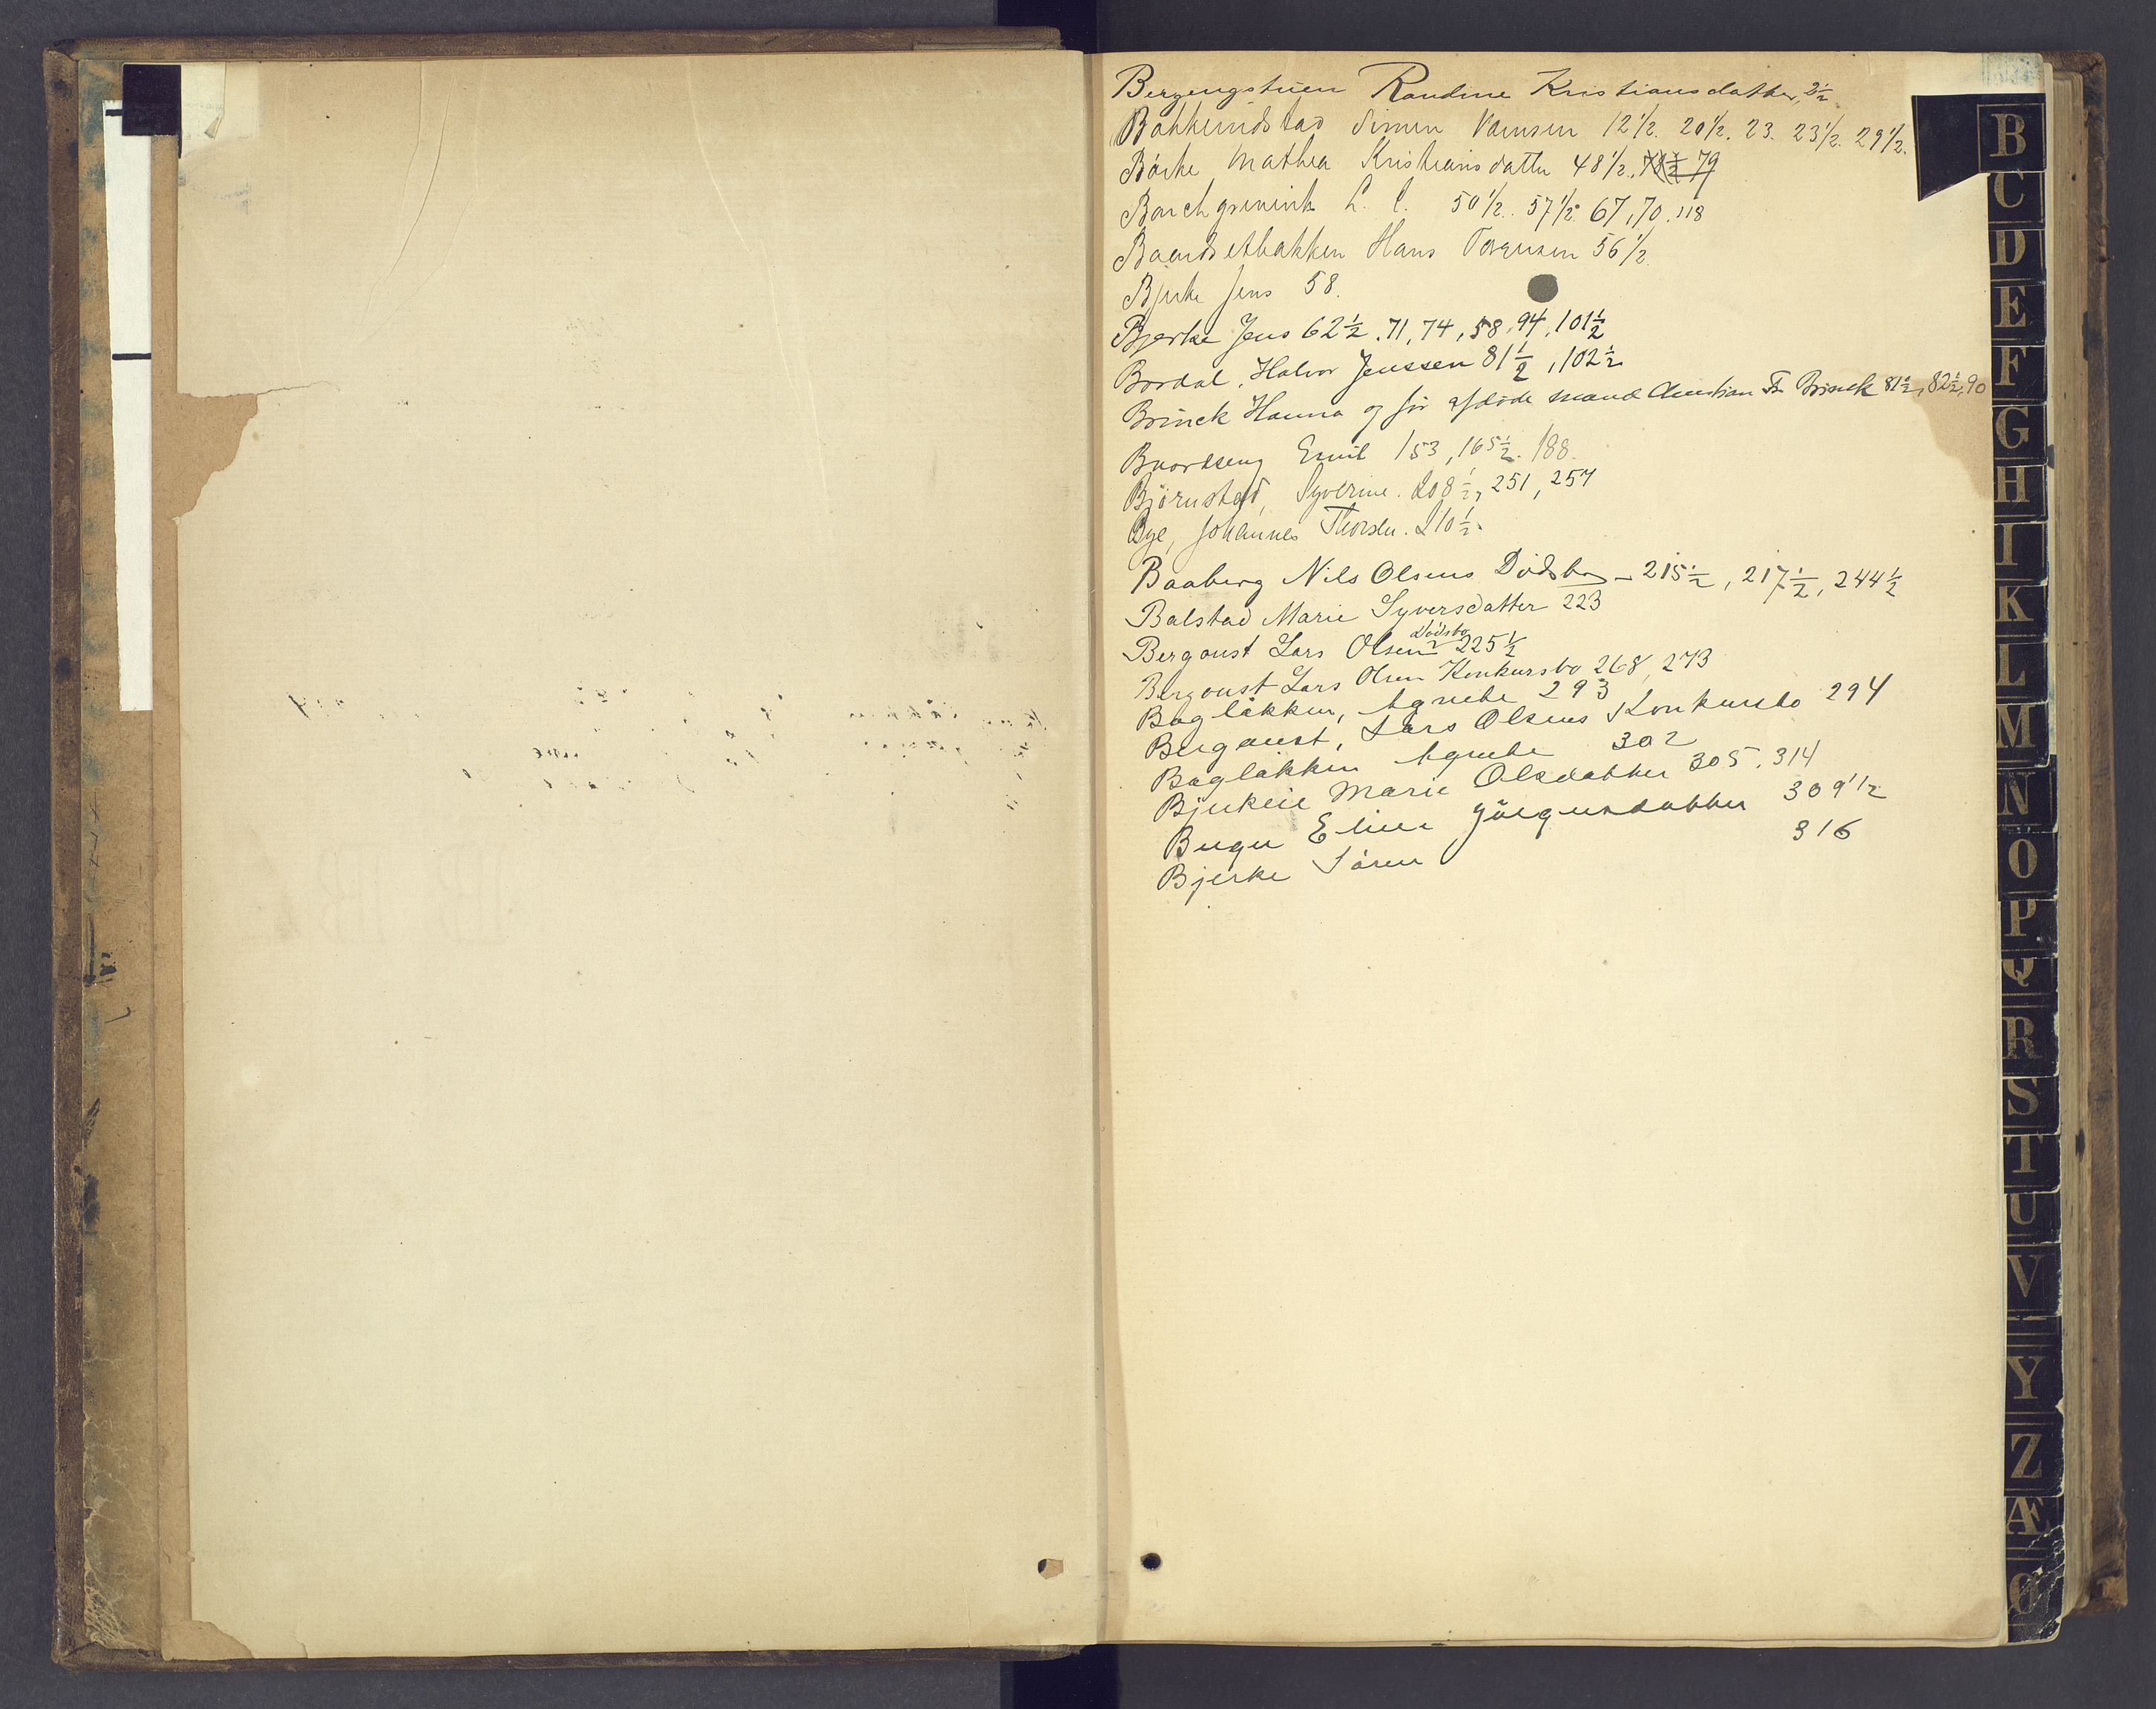 Bergengstuen Randine Kristiansdatter, 2½
Bakkerudstad Simen 12½. 20½. 23. 23½. 29½.
Börke Mathea Kristiansdatter 48½. 79
Borchgrevink L. C. 50½. 57½. 67, 70. 118
Baardsetbakken Hans 56½.
Bjerke Jens 58.
Bjerke Jens 62½. 71, 74, 58, 94, 101½
Bordal, Halvor Jenssen 81½, 102½
Brinck Hanna og for afdöde mand Christian Fr Brinck 81½, 82½, 90
Emil 153, 165½. 188.
Björnstad, Syverine. 208½, 251, 257
Bye, Johannes Thorsen. 210½.
Baaberg Nils Olsens Dödsbo – 215½, 217½, 244½
Balstad Marie Syversdatter 223
Bergoust Lars Olsens Dödsbo 225½
Bergoust Lars Olsen Konkursbo 268, 273
Baglökken, Agnethe 293
Bergoust, Lars Olsens Konkursbo 294
Baglökken Agnethe 302
Bjerkeie Marie Olsdatter 305. 314
Berger Eline Jörgensdatter 309½
Bjerke Sören 316
B
C
D
E
F
G
H
I
K
L
M
N
O
P
Q
R
S
T
U
V
Y
Z
Æ
Ø